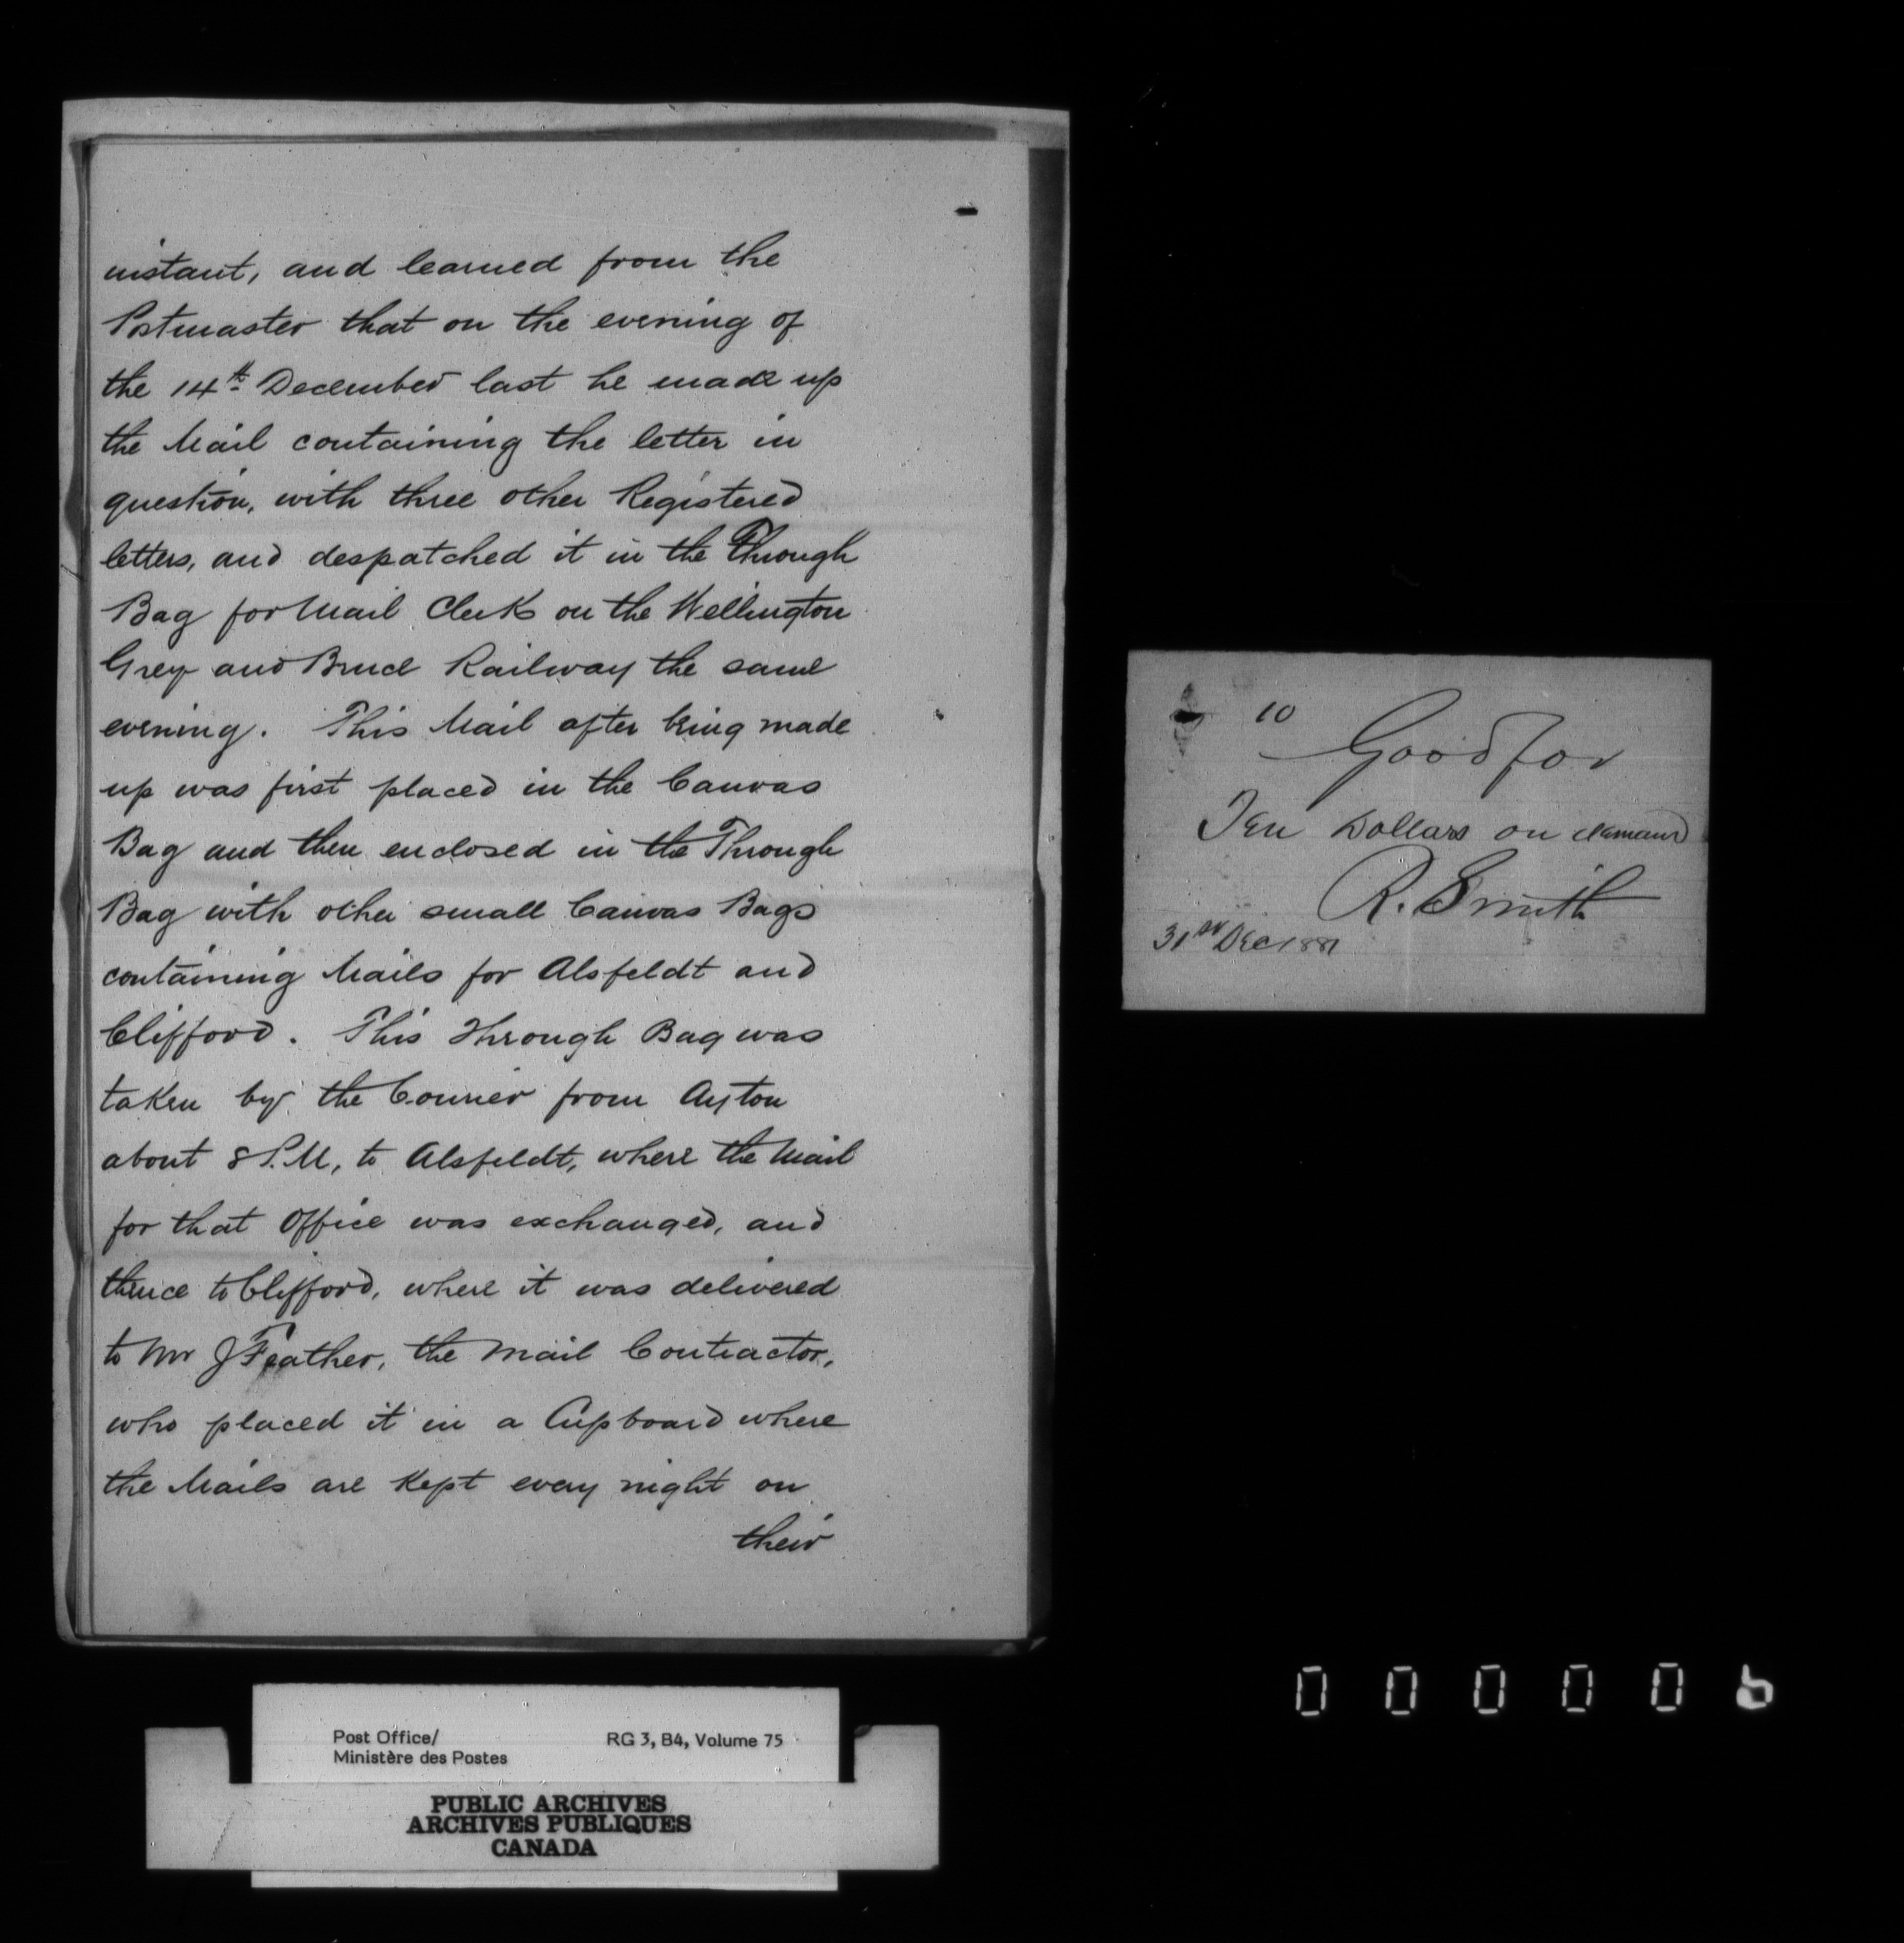 instant, and learned from the
Postmaster that on the evening of
the 14th December last he made up
the Mail containing the letter in
question, with three other Registered
letters, and despatched it in the Through
Bag for Mail Clerk on the Wellington
Grey and Bruce Railway the same
evening. This Mail after being made
up was first placed in the Canvas
Bag and then enclosed in the Through
Bag with other small Canvas Bags
containing Mails for Alsfeldt and
Clifford. This Through Bag was
taken by the Courier from Ayton
about 8 P.M, to Alsfeldt, where the Mail
for that Office was exchanged, and
thence to Clifford, where it was delivered
to Mr J Feather, the Mail Contractor,
who placed it in a Cupboard where
the Mails are kept every night on
their
10
Good for
Ten Dollars on demand
R. Smith
31st Dec 1881
000006
Post Office/ RG 3, B4, Volume 75
Ministère des Postes
PUBLIC ARCHIVES
ARCHIVES PUBLIQUES
CANADA